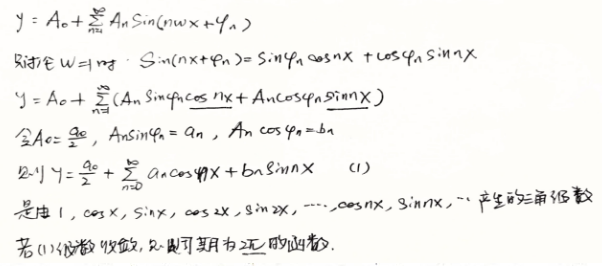 y = A₀ + ∑_{n=1}^{∞} Aₙ Sin(nwx + φₙ)
只讨论 w=1时. Sin(nx+φₙ) = Sinφₙ cosnx + cosφₙ sinnx
y = A₀ + ∑_{n=1}^{∞} (Aₙ Sinφₙ cos nx + Aₙ cosφₙ sinnx)
令A₀ = a₀/2, AₙSinφₙ = aₙ, Aₙ cosφₙ = bₙ
则 y = a₀/2 + ∑_{n=0}^{∞} aₙ cosnx + bₙ Sinnx (1)
是由 1, cosx, sinx, cos2x, sin2x, ……, cosnx, sinnx, … 产生的三角级数
若(1)级数收敛, 周期为2π的函数.